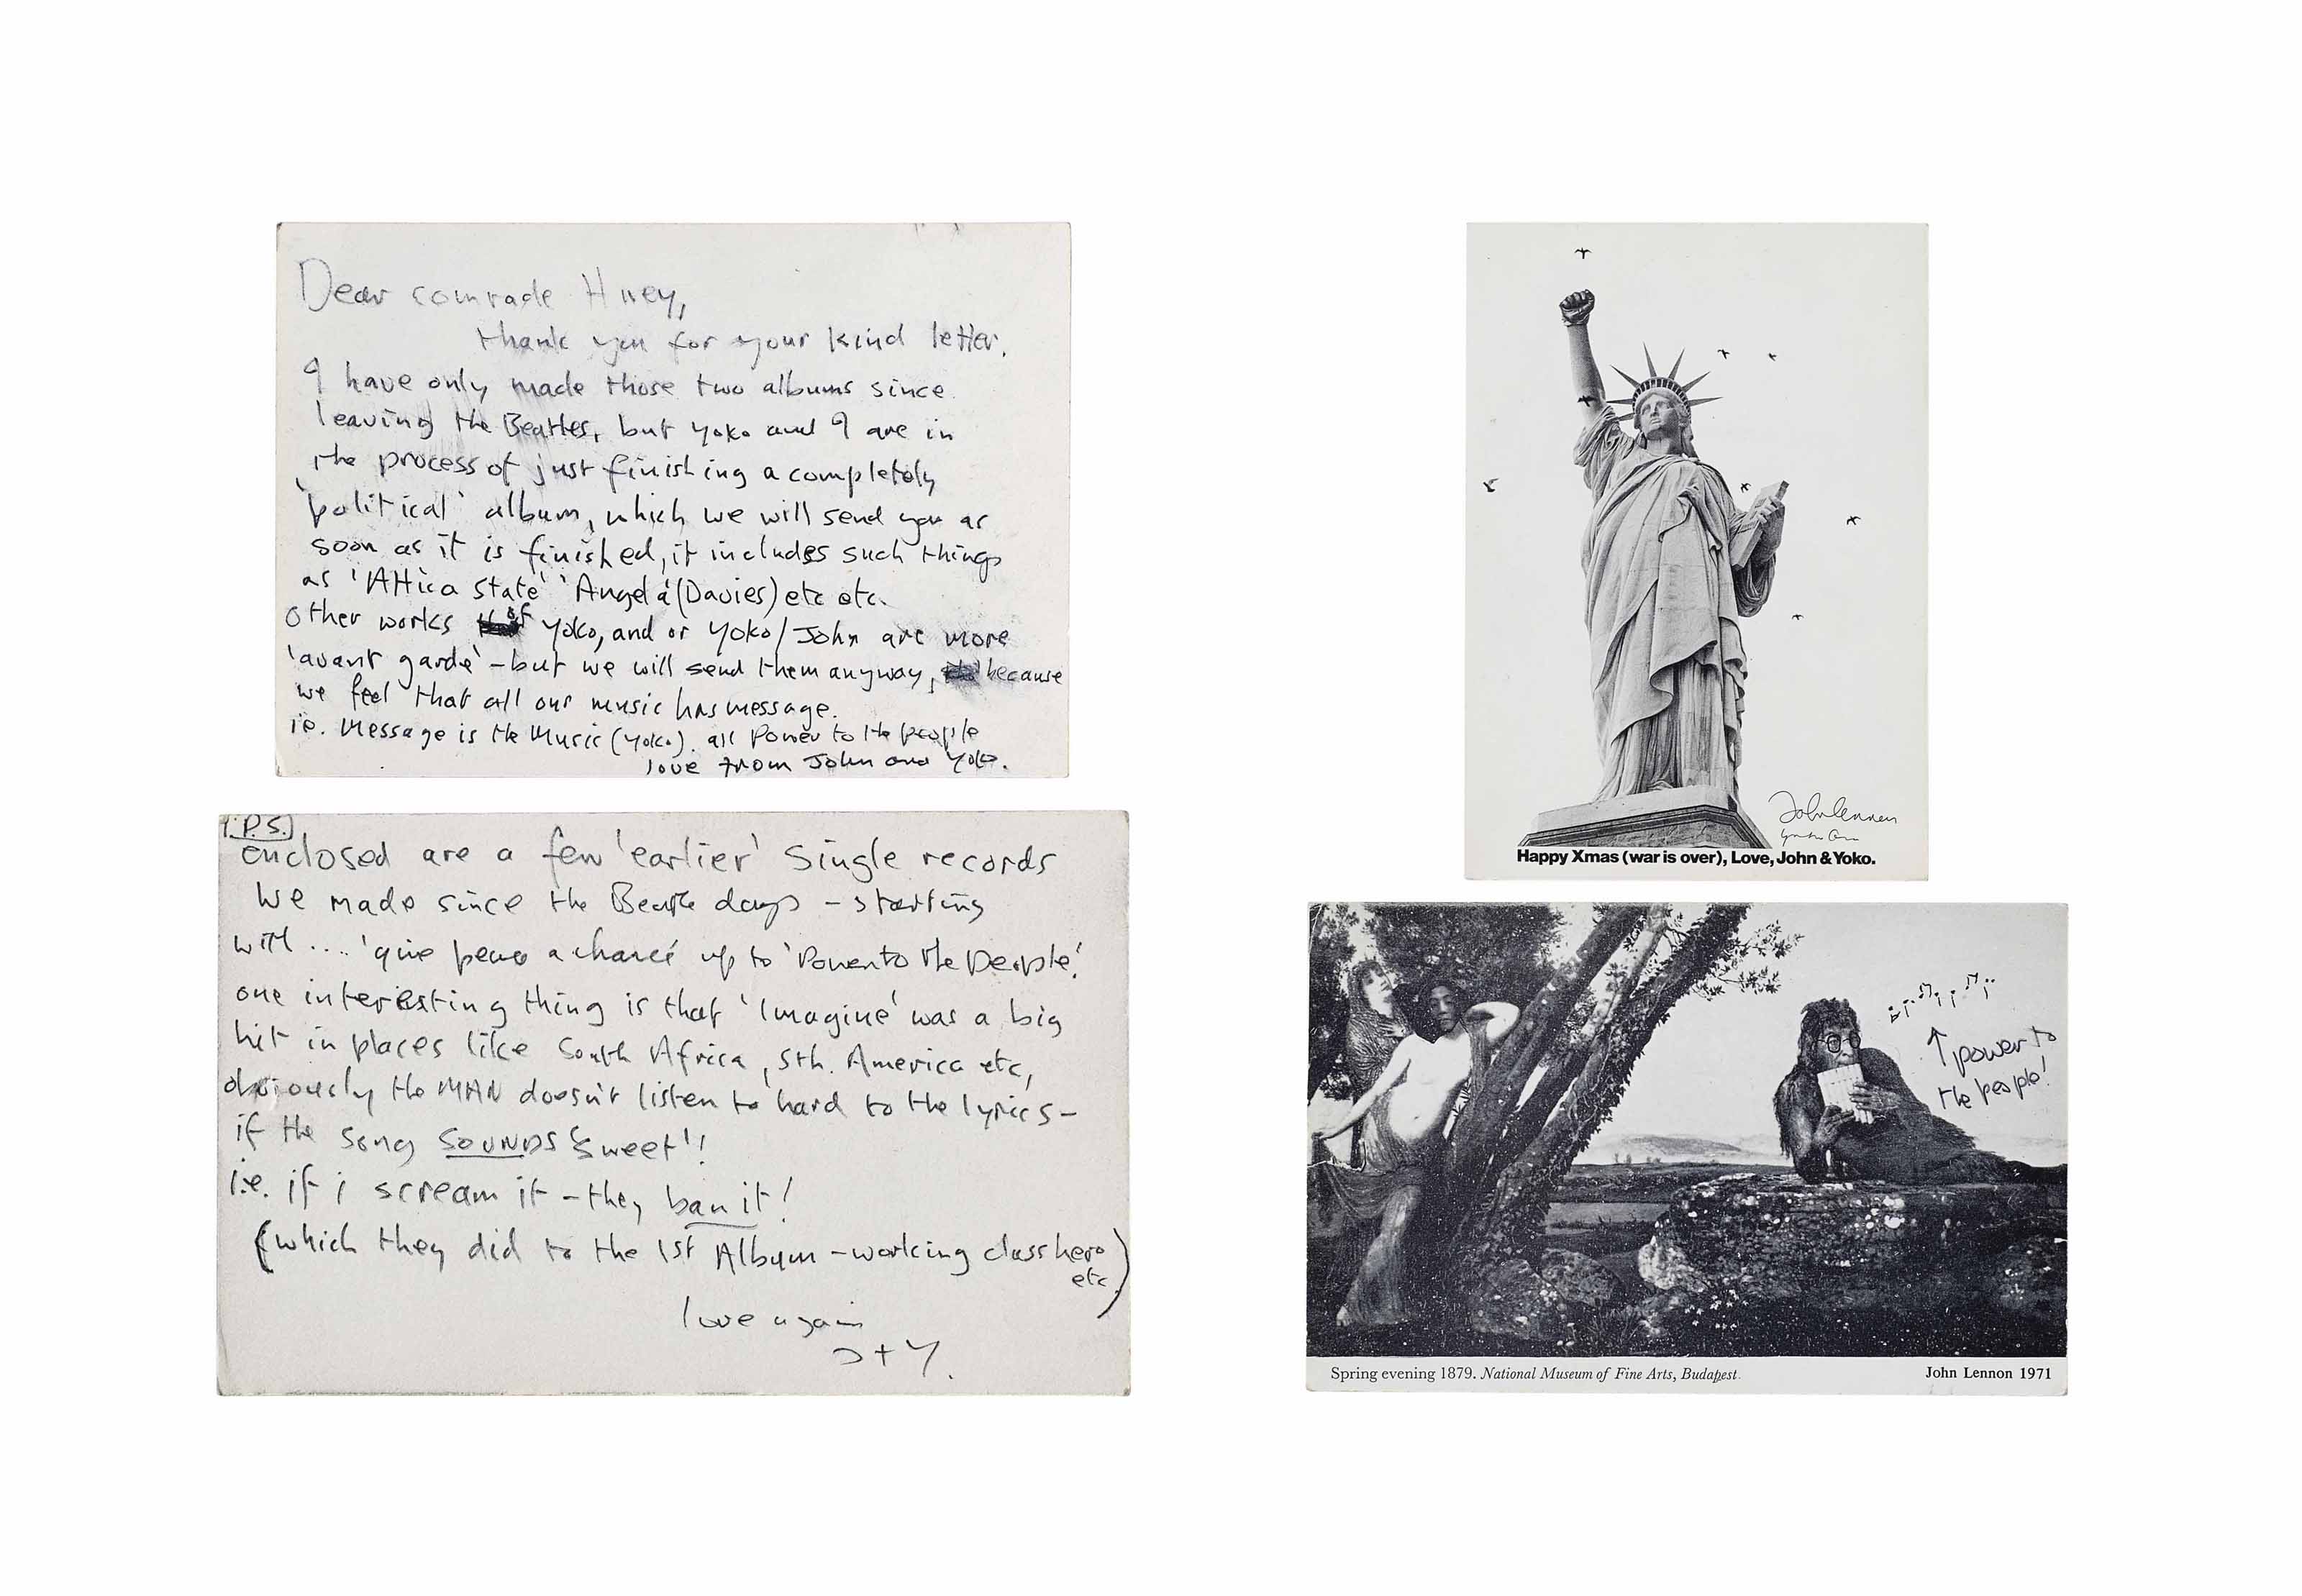 Dear comrade Huey,
thank you for your kind letter.
I have only made those two albums since
leaving the Beatles, but Yoko and I are in
the process of just finishing a completely
'political' album, which we will send you as
soon as it is finished, it includes such things
as 'Attica State' 'Angela' (Davies) etc etc.
Other works of Yoko, and or Yoko/John are more
'avant garde' – but we will send them anyway, because
we feel that all our music has message.
i.e. Message is the Music (Yoko). all Power to the people
love from John and Yoko.
P.S.
enclosed are a few 'earlier' single records
we made since the Beatle days – starting
with .... 'give peace a chance' up to 'Power to the People'.
one interesting thing is that 'Imagine' was a big
hit in places like South Africa, Sth. America etc,
obviously the MAN doesn't listen to hard to the lyrics –
if the song SOUNDS 'Sweet'!
i.e. if i scream it – they ban it!
(which they did to the 1st Album – working class hero
etc)
love again
J + Y.
John Lennon
Yoko Ono
Happy Xmas (war is over), Love, John & Yoko.
↑ power to
the people!
Spring evening 1879. National Museum of Fine Arts, Budapest.
John Lennon 1971